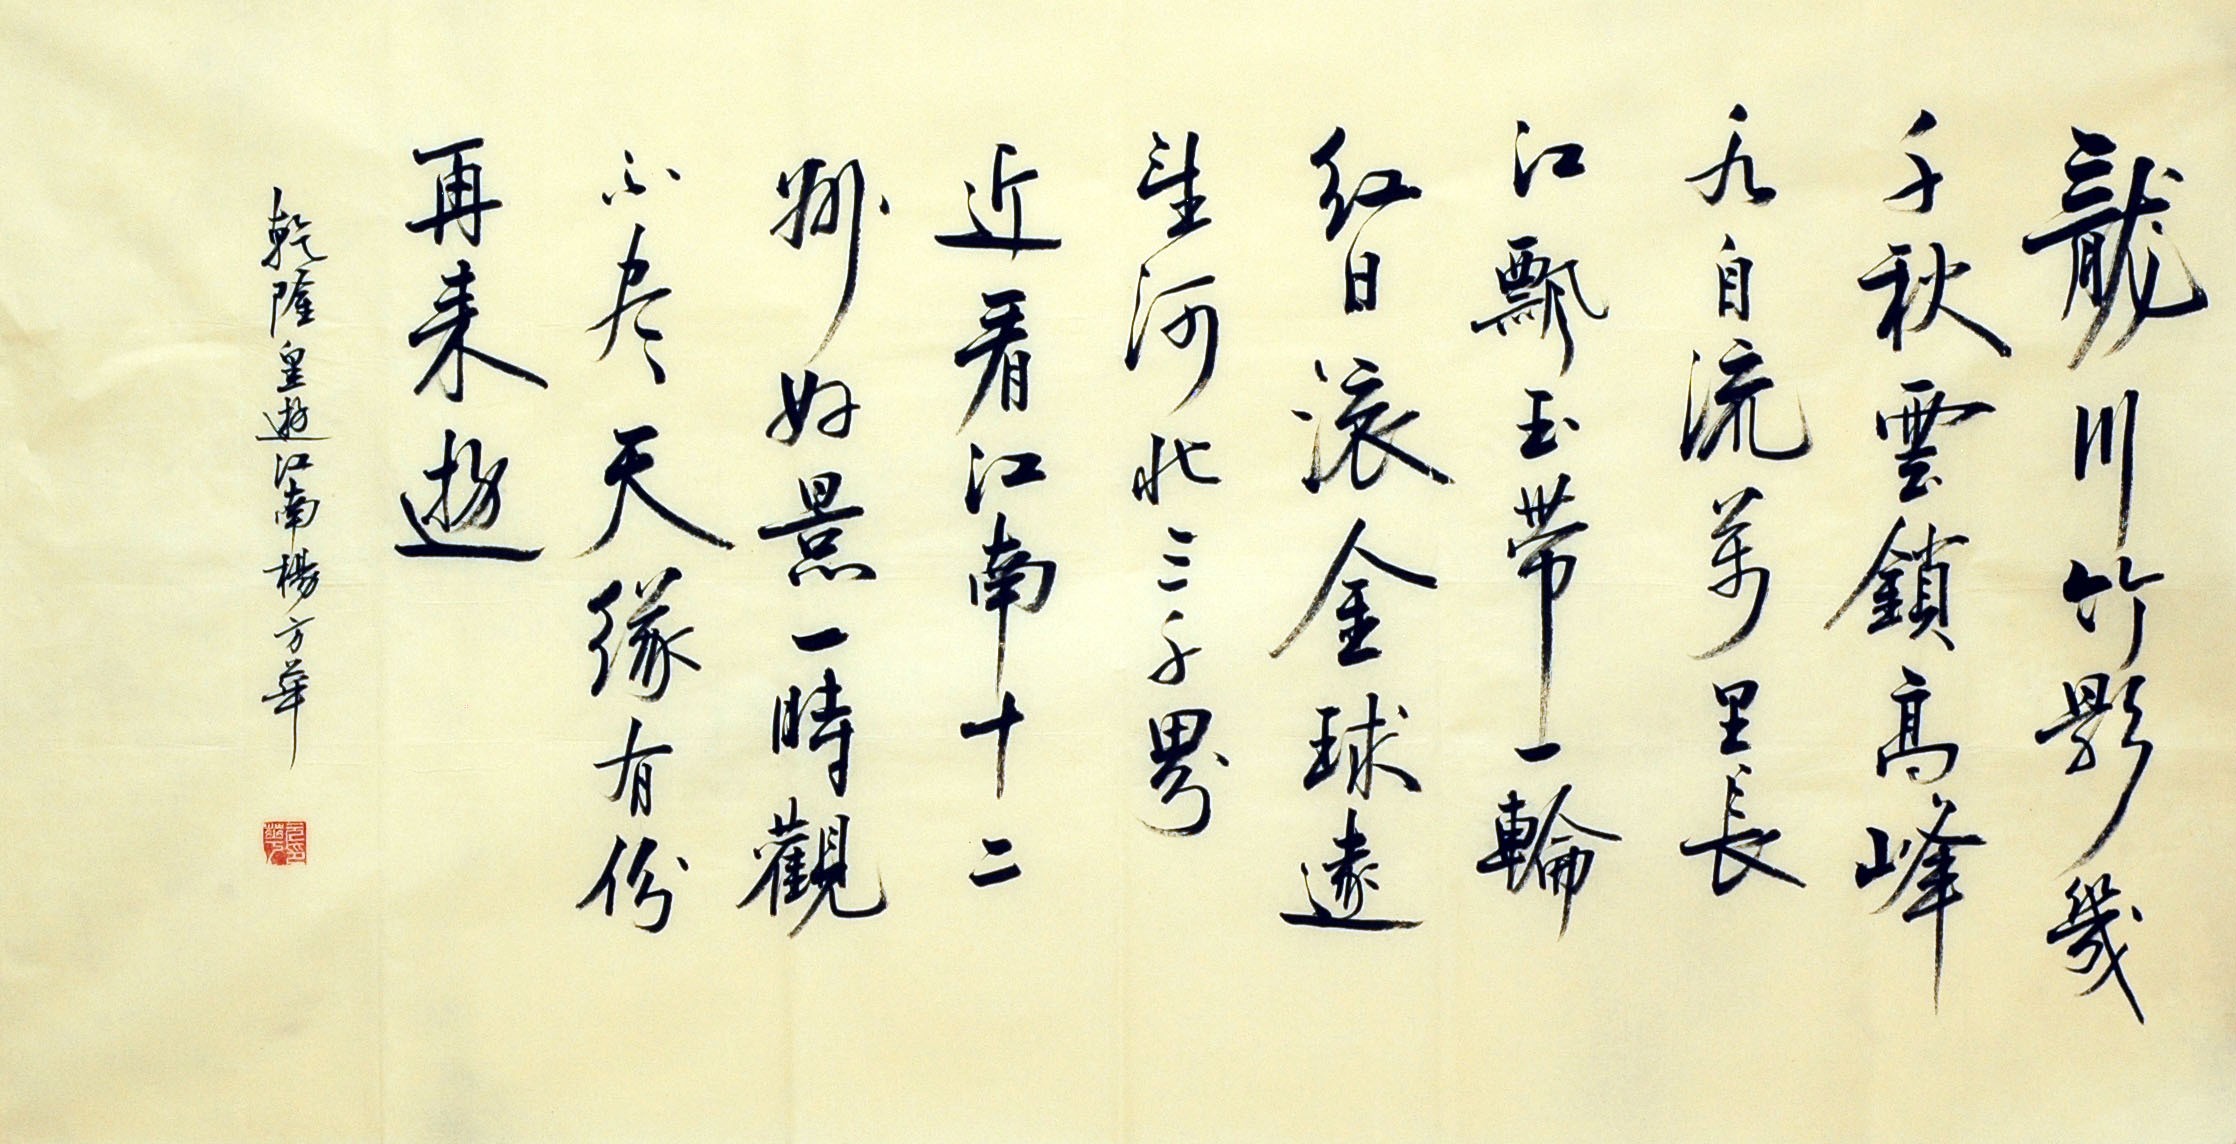 龍川竹影幾
千秋雲鎖高峰
水自流萬里長
江飄玉帶一輪
紅日滚金球遠
望河北三千界
近看江南十二
州好景一時觀
不尽天缘有份
再来遊
乾隆皇遊江南楊方華